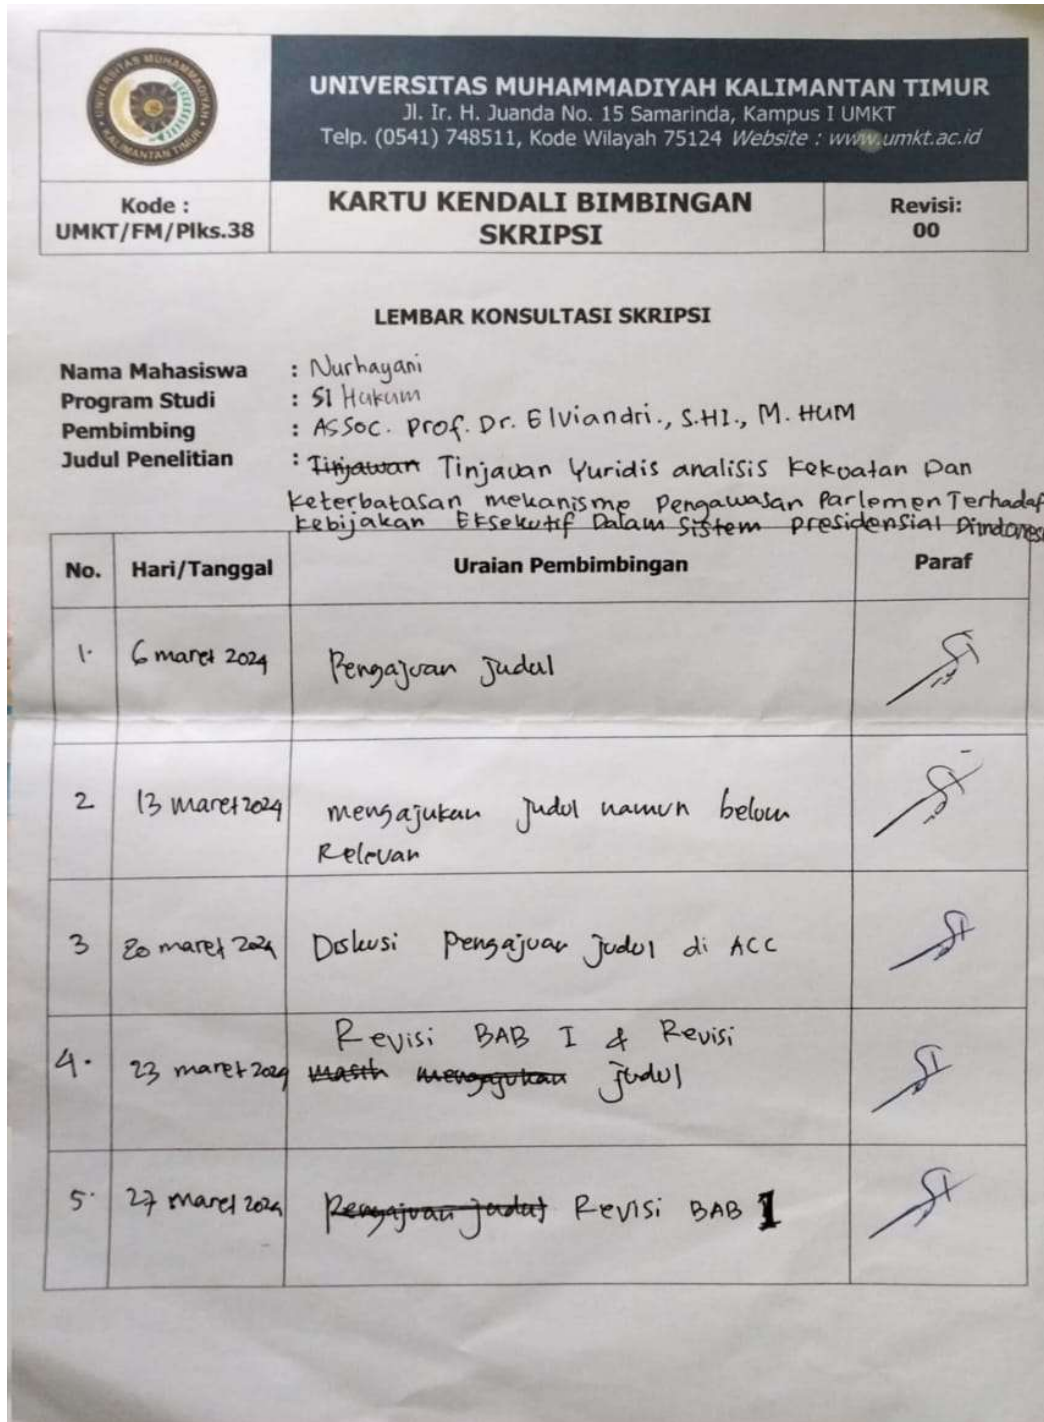 UNIVERSITAS MUHAMMADIYAH
KALIMANTAN TIMUR
UNIVERSITAS MUHAMMADIYAH KALIMANTAN TIMUR
Jl. Ir. H. Juanda No. 15 Samarinda, Kampus I UMKT
Telp. (0541) 748511, Kode Wilayah 75124 Website : www.umkt.ac.id
Kode :
UMKT/FM/Plks.38
KARTU KENDALI BIMBINGAN
SKRIPSI
Revisi:
00
LEMBAR KONSULTASI SKRIPSI
Nama Mahasiswa : Nurhayani
Program Studi : S1 Hukum
Pembimbing : Assoc. Prof. Dr. Elviandri., S.HI., M. HUM
Judul Penelitian : Tinjawan Tinjauan Yuridis analisis Kekuatan Dan
Keterbatasan mekanisme Pengawasan Parlemen Terhadap
Kebijakan Eksekutif Dalam Sistem presidensial Diindonesi
No. Hari/Tanggal Uraian Pembimbingan Paraf
1. 6 maret 2024 Pengajuan Judul
2 13 maret 2024 mengajukan Judul namun belum
Relevan
3 20 maret 2024 Diskusi Pengajuan Judul di ACC
Revisi BAB I & Revisi
4. 23 maret 2024 masih mengajukan judul
5. 27 maret 2024 Pengajuan judul Revisi BAB 1